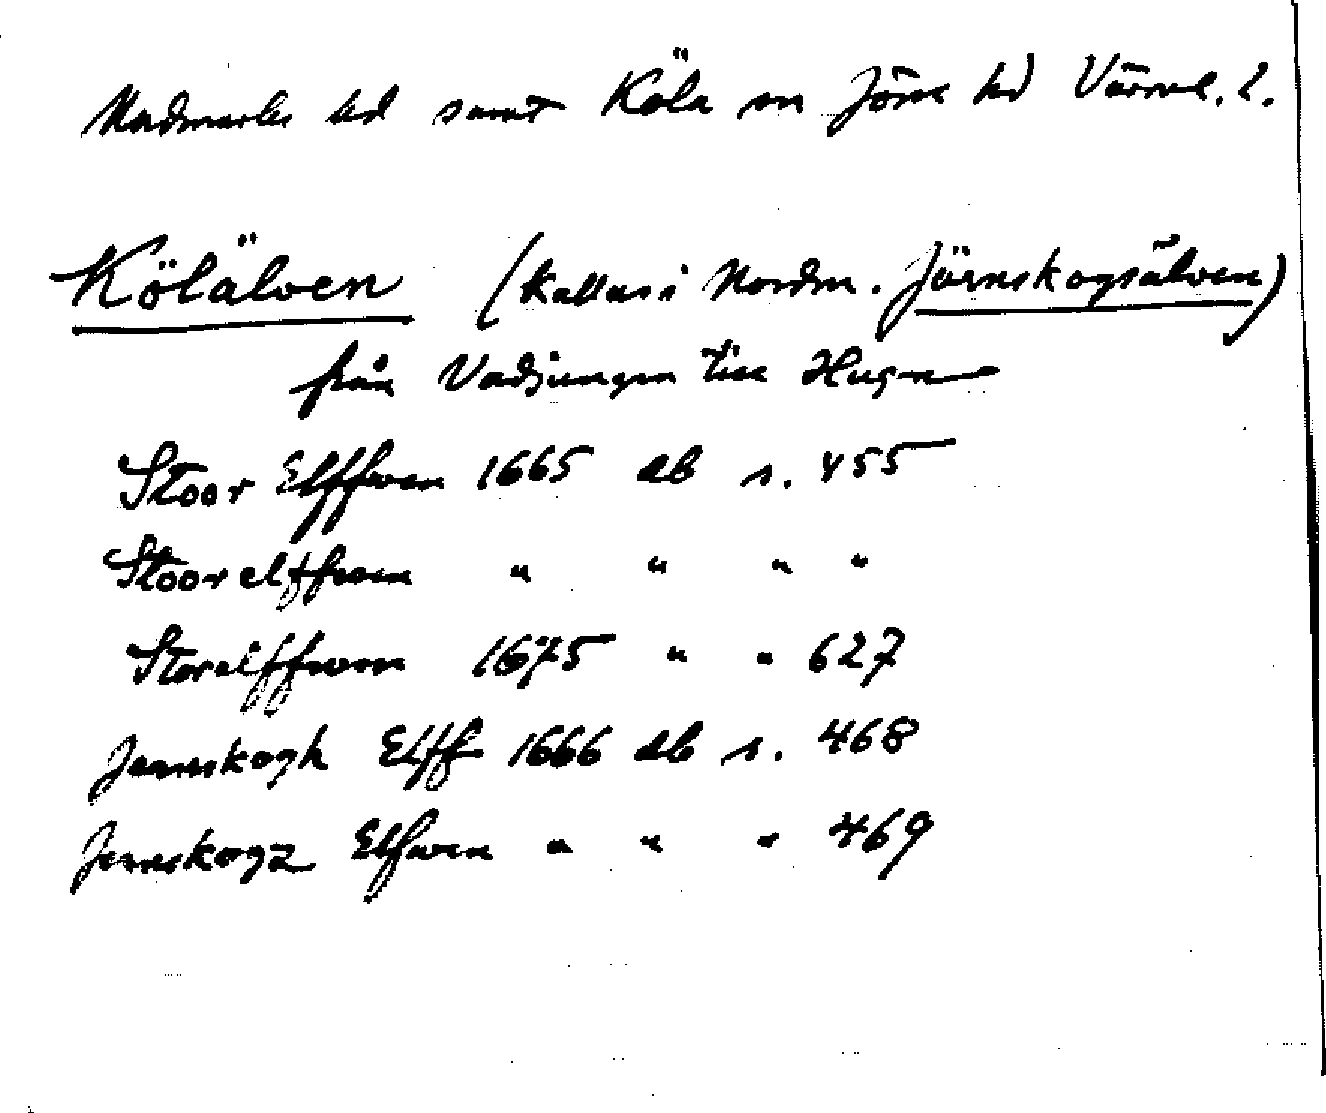 Nordmarks hd samt Köla sn Jösse hd Värml. l.
Kölälven (kallas i Nordm. Järnskogsälven)
från Vadjungen till Hugn
Stoor Elffwen 1665 db s. 455
Stoorelffwen " " " "
Storelffwen 1675 " " 627
Jernskogh Elff 1666 db s. 468
Jernskogz Elfwen " " " 469